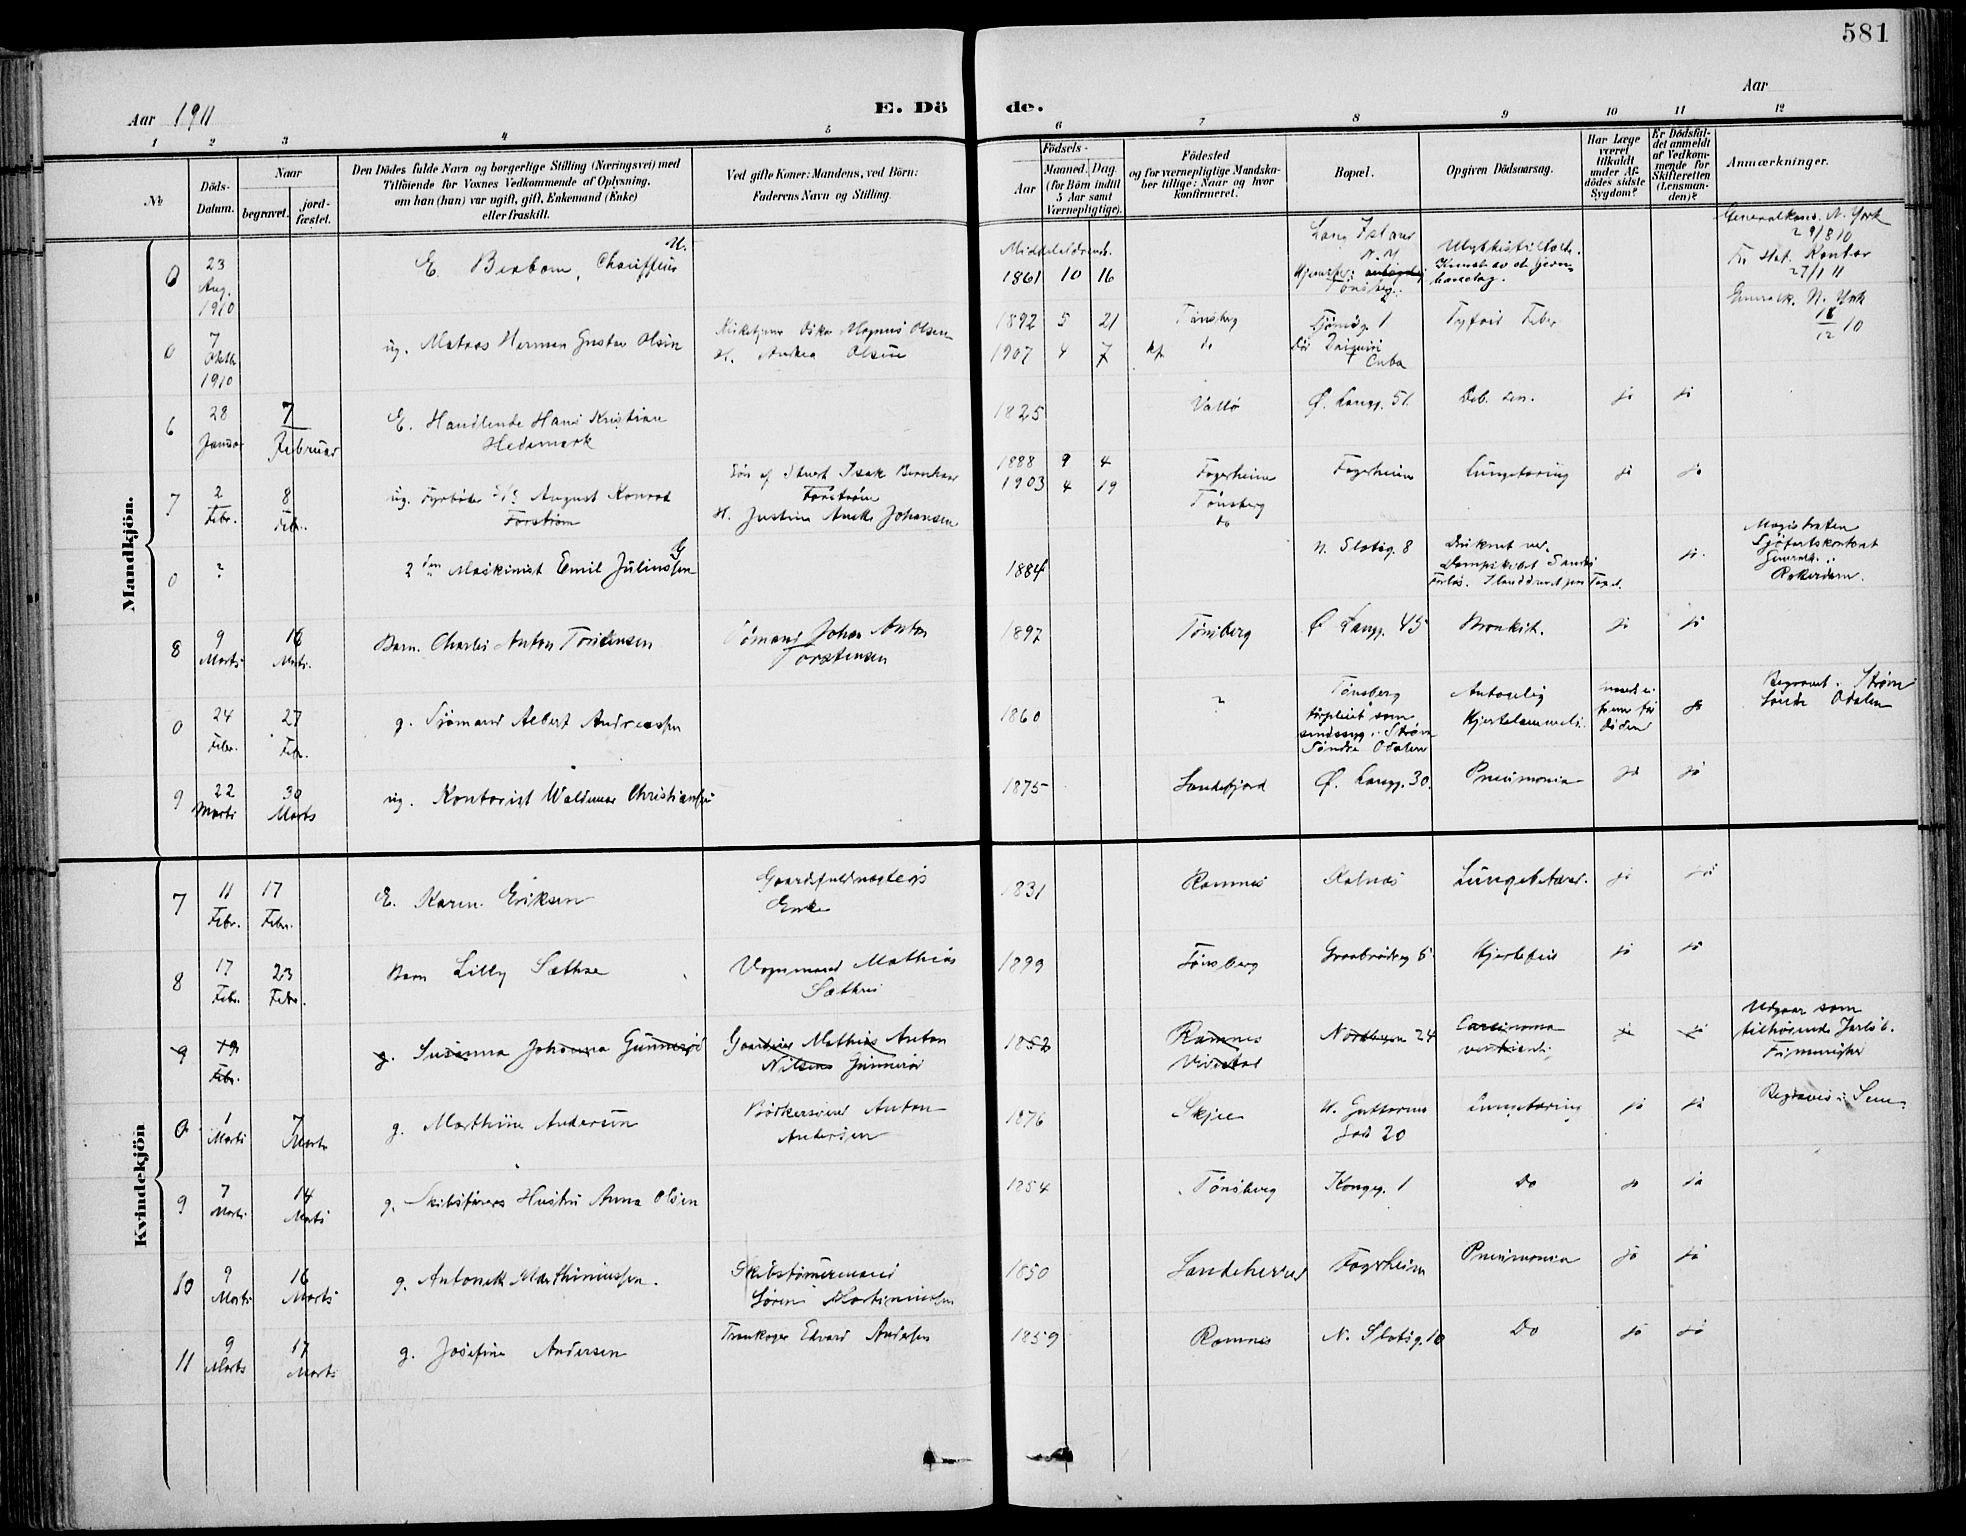 581
Aar 1911
E. Dö
de.
Aar
1 2 3 4 5 6 7 8 9 10 11 12
No
Döds-
Datum.
Naar
begravet.
jord-
fæstet.
Den Dödes fulde Navn og borgerlige Stilling (Næringsvei) med
Tilföiende for Voxnes Vedkommende af Oplysning,
om han (hun) var ugift, gift, Enkemand (Enke)
eller fraskilt.
Ved gifte Koner: Mandens, ved Börn:
Faderens Navn og Stilling.
Födsels-
Aar
Maaned. Dag.
(for Börn indtil
5 Aar samt
Værnepligtige).
Födested
og for værnepligtige Mandska-
ber tillige: Naar og hvor
konfirmeret.
Bopæl.
Opgiven Dödsaarsag.
Har Læge
været
tilkaldt
under Af-
dödes sidste
Sygdom?
Er Dödsfal-
det anmeldt
af Vedkom-
mende for
Skifteretten
(Lensman-
den)?
Anmærkninger.
Mandkjön.
0 23 Aug. 1910
E. , Chauffeur
1861 10 16
Long Island
N.Y.
Tönsberg
Generalkons. N. York
29/8 10
Fr. Stat. Kontor
27/1 11
0 7 Oktb 1910
ug. Herman Gustav Olsen
Magnus Olsen
H. Andrea Olsen
1892 5 21
1907 4 7
Tönsberg
kf. do
Cuba
Tyfoid Feber
Generalk. N. York
18/12 10
6 28 Januar
7 Februar
E. Handlende Hans Kristian
Hedemark
1825
Vallö
Ø. Langg. 51
Deb. sen.
ja ja
7 2 Febr. 8 Febr.
ug. Fyrböter August Konrad
Forström
Sön af Isak Bernhard
Forström
H. Justine Johansen
1888 9 4
1903 4 19
Fagerheim
Tönsberg
do
Fagerheim
Lungetæring
ja ja
0 ?
2den Maskinist Emil Juliussen
G
1884
N. Slotsg. 8
Druknet ved
ja.
Magistraten
Sjöfartskontoret
Rotterdam.
8 9 Marts 16 Marts.
Barn. Charles Anton Torstensen
Johan Anton
Torstensen
1897
Tönsberg
Ø Langg. 45
Bronkit.
ja ja
0 24 Febr. 27 Febr.
g. Sjömand Albert Andreassen
1860
?
Tönsberg
forpleiet som
sindssyg i Ström
Söndre Odalen
Antagelig
Hjertelammelse.
ja
Begravet i Ström
Söndre Odalen
9 22 Marts 30 Marts
ug. Kontorist Waldemar Christiansen
1875
Sandefjord
Ø. Langg. 30.
Pneumonia
ja ja
Kvindekjön
7 11 Febr. 17 Febr.
E. Karen Eriksen
Gaardsfuldmægtigs
Enke
1831
Ramnes
Kalnæs
ja ja
8 17 Febr. 23 Febr.
Barn Lilly Sæthre
Vognmand Mathias
Sæthre
1899
Tönsberg
Graabrödreg 6
Hjertefeil
ja ja
9 19 Febr.
g. Susanna Johanna Gunneröd
Gaardeier Mathias Anton
Nilsens Gunneröd
1852
Ramnes
Nordbyen 24
Carcinoma
ventriculi
ja ja
Udgaar som
tilhörende Jarlsb.
Frimenighet
0 1 Marts 7 Marts
g. Marthine Andersen
Bödkersvend Anton
Andersen
1876
Skjee
N. Guttorms
Gade 20
Lungetæring
ja ja
Begraves i Sem.
9 7 Marts 14 Marts
g. Skibsförers Hustru Anna Olsen
1854
Tönsberg
Kongeg. 1
Do
ja ja
10 9 Marts 16 Marts
g. Antonette Marthiniussen.
Skibstömmermand
Sören Martiniussen
1850
Sandeherred
Fagerheim
Pneumonia
ja ja
11 9 Marts 17 Marts
g. Josefine Andersen
Trankoger Edvard Andersen
1859
Ramnes
N. Slotsg. 10
Do
ja ja